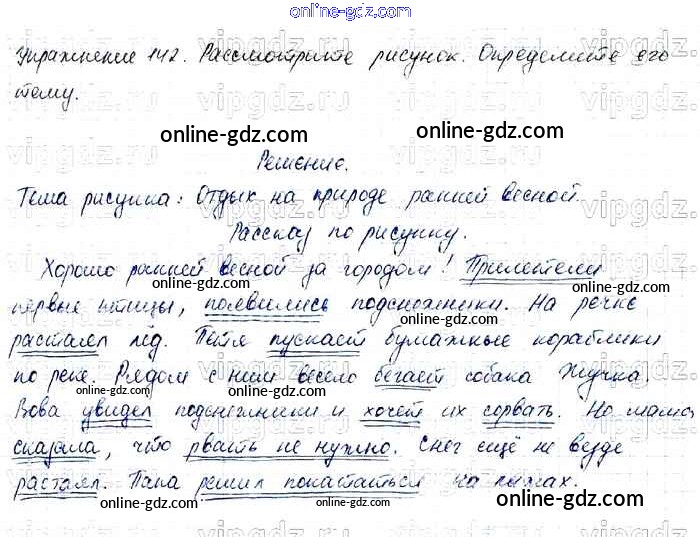 online-gdz.com
Упражнение 142. Рассмотрите рисунок. Определите его
тему.
online-gdz.com online-gdz.com
Решение.
Тема рисунка: Отдых на природе ранней весной.
Рассказ по рисунку.
Хорошо ранней весной за городом! Прилетели
первые птицы, появились подснежники. На речке
растаял лёд. Петя пускает бумажные кораблики
по реке. Рядом с ним весело бегает собака Жучка.
Вова увидел подснежники и хочет их сорвать. Но мама
сказала, что рвать не нужно. Снег ещё не везде
растаял. Папа решил покататься на лыжах.
online-gdz.com online-gdz.com online-gdz.com